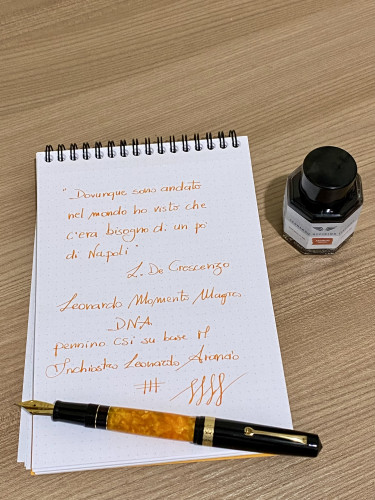 "Dovunque sono andato
nel mondo ho visto che
c'era bisogno di un po'
di Napoli".
L. De Crescenzo
Leonardo Momento Magico
DNA
pennino CSI su base M
Inchiostro Leonardo Arancio